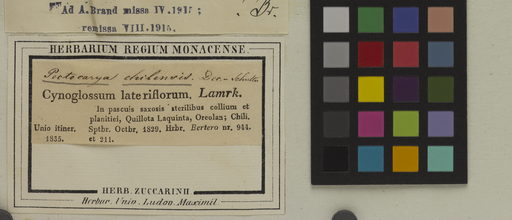 Ad A. Brand missa IV. 1915 ;
remissa VIII. 1915.
Br.
HERBARIUM REGIUM MONACENSE.
Pectocarya chilensis. Dec.
Cynoglossum lateriflorum, Lamrk.
In pascuis saxosis sterilibus collium et
planitiei, Quillota Laquinta, Ocoolan; Chili.
Unio itiner. Sptbr. Octbr, 1829, Hrbr. Bertero nr. 944.
1835. et 211.
HERB. ZUCCARINII
Herbar. Univ. Ludov. Maximil.